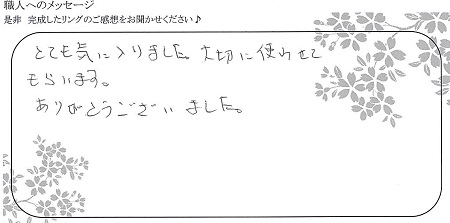 職人へのメッセージ
是非 完成したリングのご感想をお聞かせください♪
とても気に入りました。大切に使わせて
もらいます。
ありがとうございました。